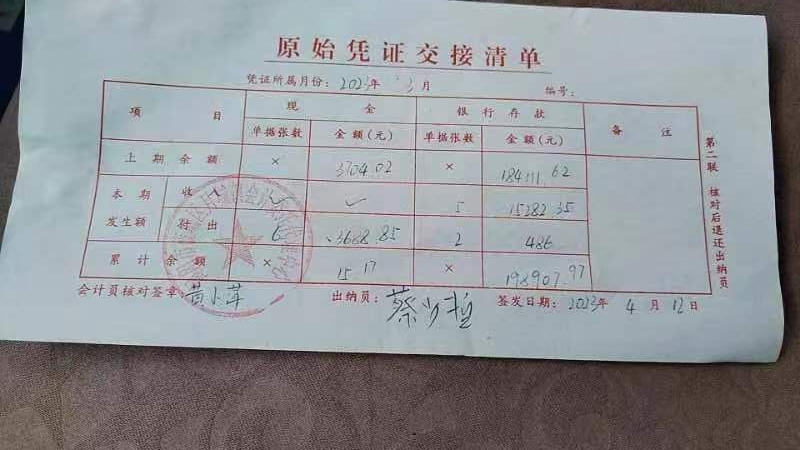 原始凭证交接清单
凭证所属月份：2023年 3月 编号：
项 目 现 金 银行存款 备 注
单据张数 金额(元) 单据张数 金额(元)
上期余额 × 3704.02 × 184111.62
本期发生额 收入 ✓ ✓ 5 15282.35
付出 6 3688.85 2 486
累计余额 × 15.17 × 198907.97
会计员核对签章：黄小萍 出纳员：蔡 签发日期：2023年 4月12日
第二联 核对后退还出纳员